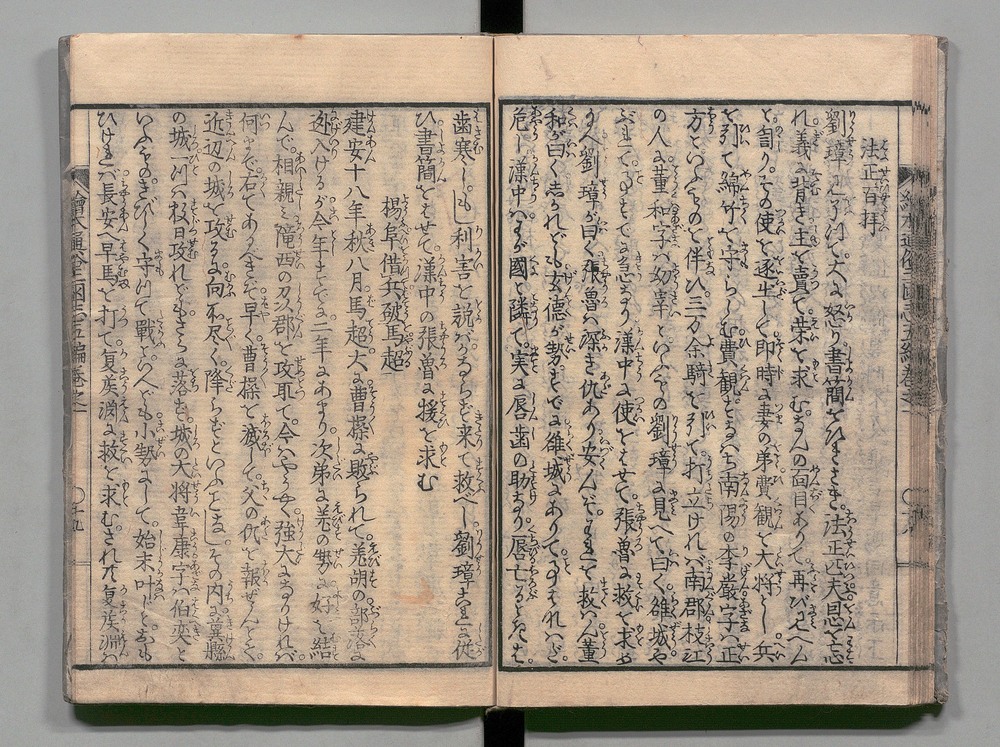 法正百拜
劉璋これを見て大に怒り書簡をひきさき法正匹夫恩を忘
れ義に背き主を賣て栄を求むなんの面目ありて再び見へん
と罵りその使を逐出して即時に妻の弟費観を大将とし兵
を引て綿竹を守らしむ費観すなはち南陽の李嚴字ハ正
方といふものを伴ひ三万余騎を引て打立けれバ南郡枝江
の人に董和字ハ幼宰といふもの劉璋に見へて曰く雒城や
ぶれて
劉璋が曰く張魯ハ深き仇あり安んぞ来て救ハん董
和が曰くしかれども玄徳が勢すでに雒城にありて
危し漢中ハわが國と隣て実に唇歯の助なり唇亡るときハ
歯寒しもし利害を説バかならず来て救べし劉璋これに從
ひ書簡をはせて漢中の張魯に援を求む
楊阜借兵破馬超
建安十八年秋八月馬超大に曹操に敗られて羌胡の部落に
迯入けるが今年まで二年にあまり次第に羌の勢に好を結
んで相親み隴西の州郡を攻取て今ハやうやく強大になりけれバ
何とぞ石てあるべきぞ早く曹操を滅して父の仇を報ぜんとて
近辺の城を攻るに向ふ処尽く降らずといふことなしその内に冀縣
の城一ツハ数日攻れどもさらに落ず城の大将韋康字ハ伯奕と
いふものきびしく守りて戰といへども小勢にして始末叶じと思
ひけれバ長安へ早馬を打て夏族淵に救を求むされども夏族淵ハ
繪本通俗三國志五編巻之一